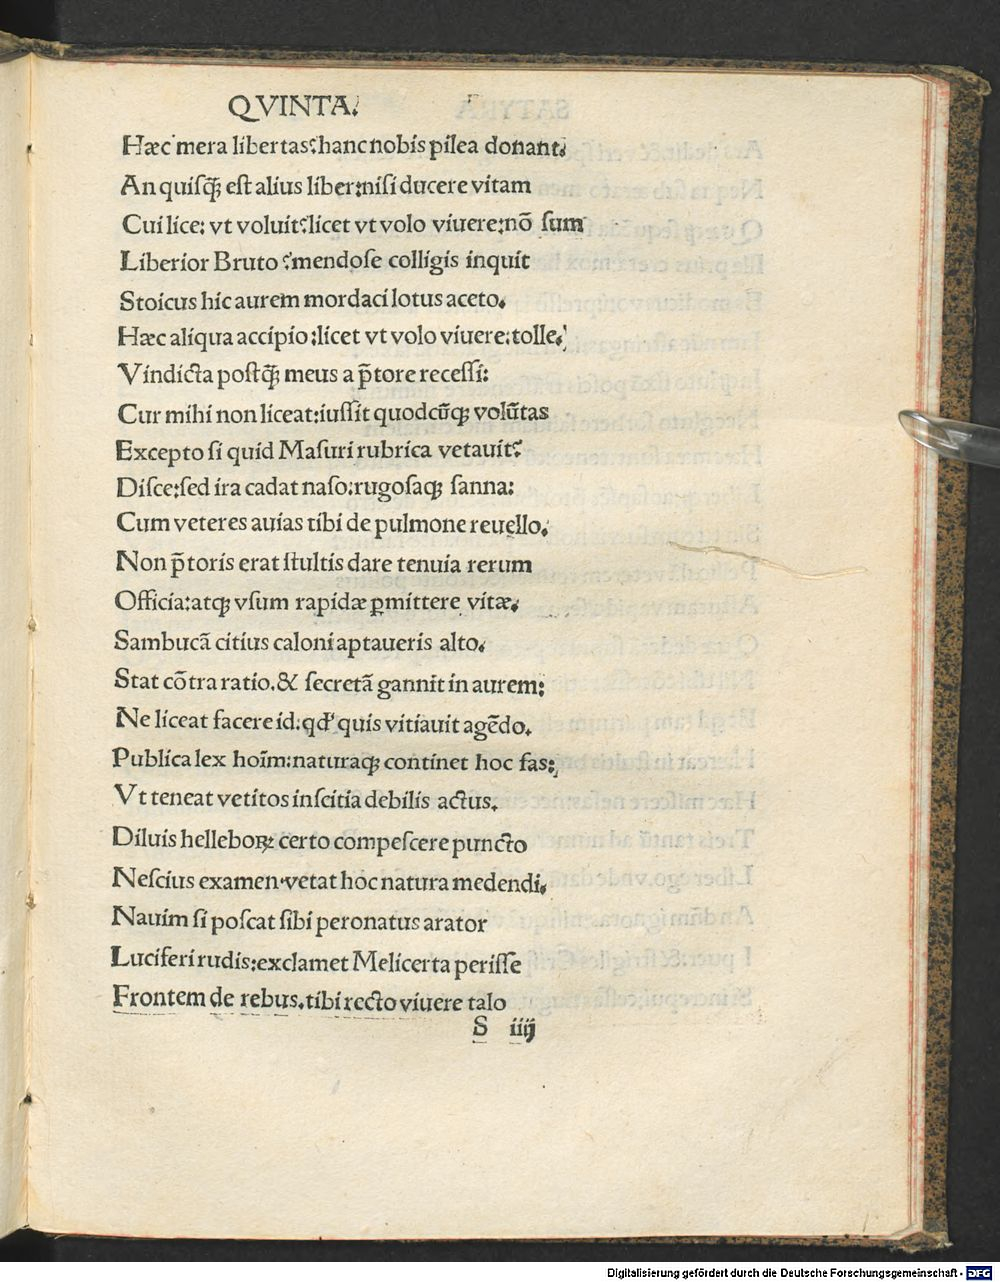 QVINTA.
Hæc mera libertas?hanc nobis pilea donant.
An quisq̃ꝫ eſt alius liber:niſi ducere vitam
Cui lice: vt voluit?licet vt volo viuere:nõ ſum
Liberior Bruto?mendoſe colligis inquit
Stoicus hic aurem mordaci lotus aceto.
Hæc aliqua accipio:licet vt volo viuere:tolle.
Vindicta poſtq̃ꝫ meus a p̃tore receſſi:
Cur mihi non liceat:iuſſit quodcũqꝫ volũtas
Excepto ſi quid Maſuri rubrica vetauit?
Diſce:ſed ira cadat naſo:rugoſaqꝫ ſanna:
Cum veteres auias tibi de pulmone reuello.
Non p̃toris erat ſtultis dare tenuia rerum
Officia:atqꝫ vſum rapidæ ꝑmittere vitæ.
Sambucã citius caloni aptaueris alto.
Stat cõtra ratio.& ſecretã gannit in aurem:
Ne liceat facere id:qđ quis vitiauit agẽdo.
Publica lex hoĩm:naturaqꝫ continet hoc fas:
Vt teneat vetitos inſcitia debilis actus.
Diluis helleboꝝ: certo compeſcere puncto
Neſcius examen·vetat hoc natura medendi.
Nauim ſi poſcat ſibi peronatus arator
Luciferi rudis:exclamet Melicerta periſſe
Frontem de rebus.tibi recto viuere talo
S iiij
Digitalisierung gefördert durch die Deutsche Forschungsgemeinschaft - DFG